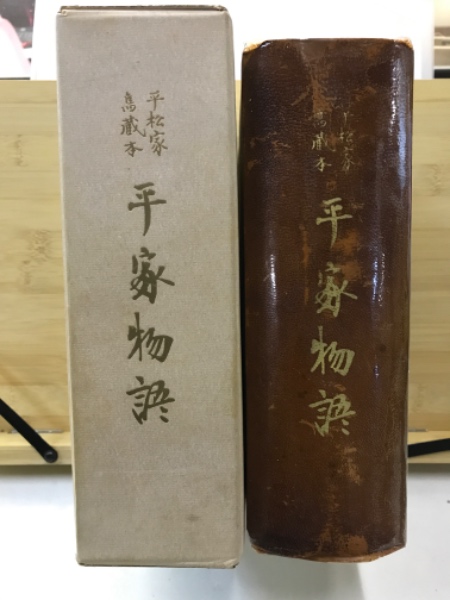 平松家
舊藏本
平家物語
平松家
舊藏本
平家物語